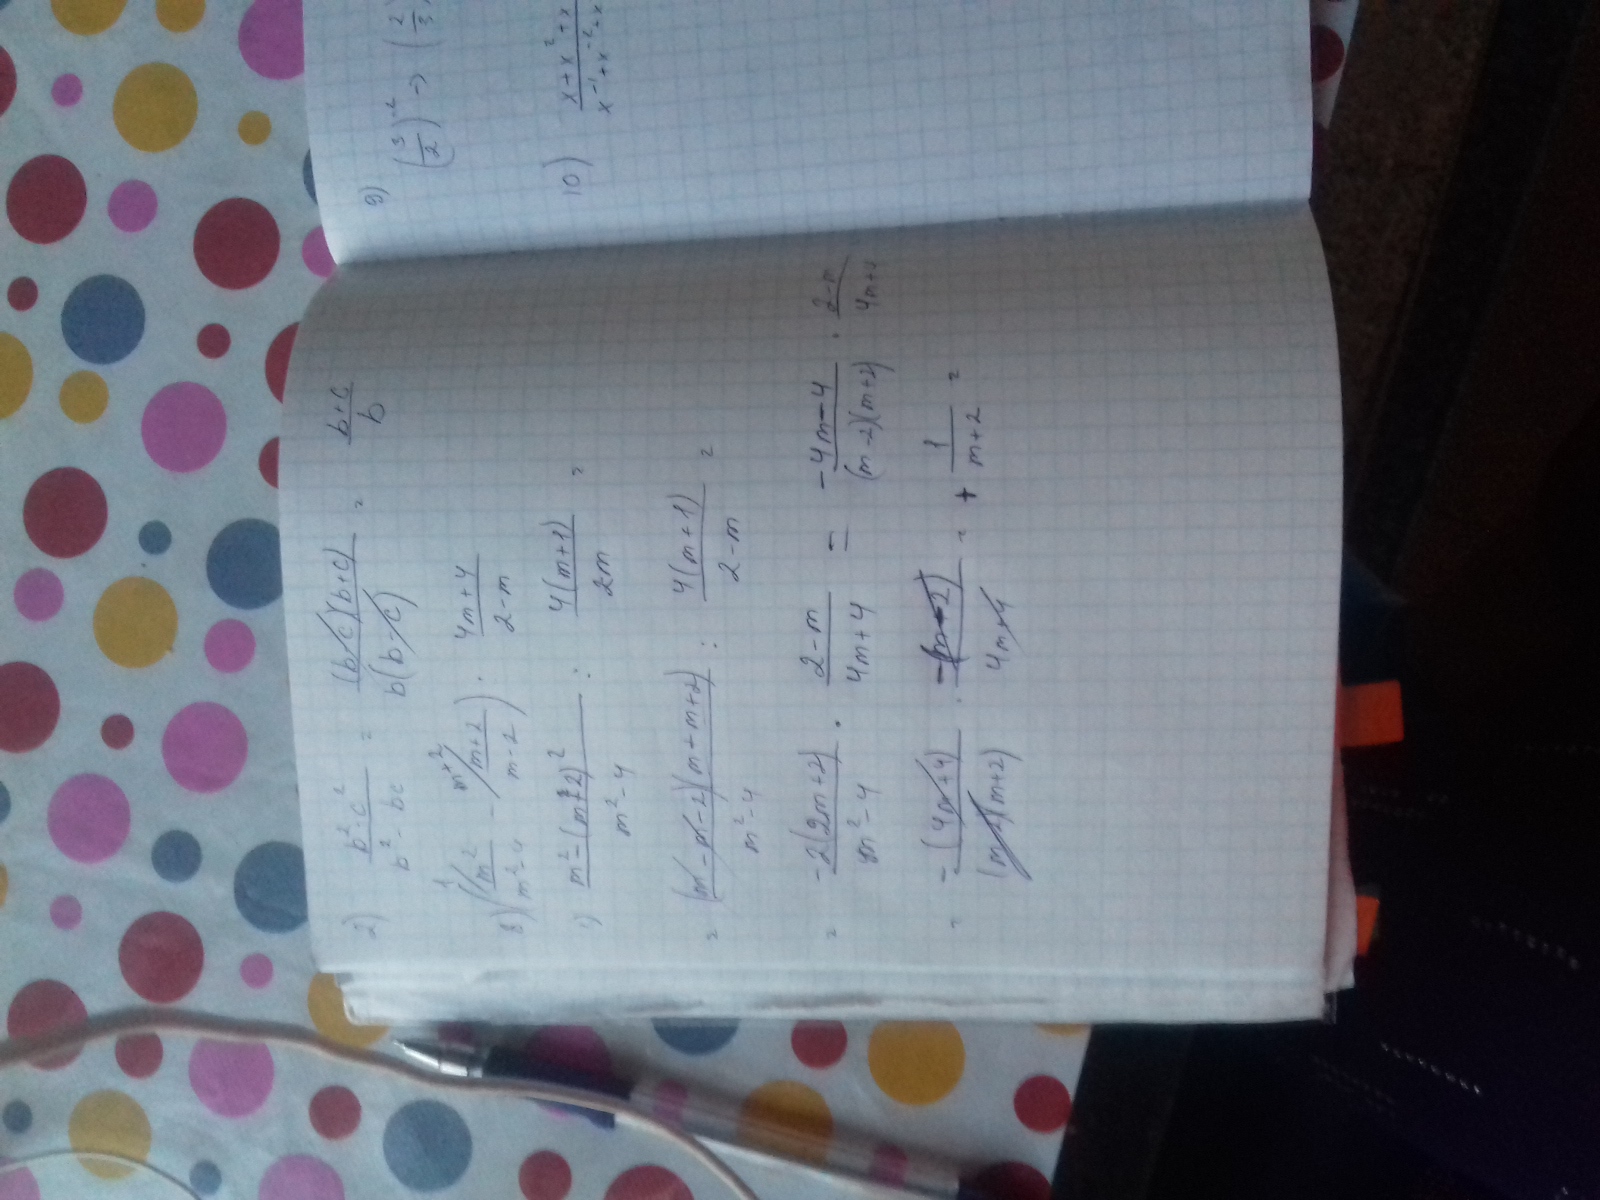 2) \frac{b^2-c^2}{b^2-bc} = \frac{(b-c)(b+c)}{b(b-c)} = \frac{b+c}{b}
8) \left(\frac{m^2}{m^2-4} - \frac{m+2}{m-2}\right) : \frac{4m+4}{2-m}
1) \frac{m^2-(m+2)^2}{m^2-4} : \frac{4(m+1)}{2m} =
= \frac{(m-m-2)(m+m+2)}{m^2-4} : \frac{4(m+1)}{2-m} =
= \frac{-2(2m+2)}{m^2-4} \cdot \frac{2-m}{4m+4} = \frac{-4m-4}{(m-2)(m+2)} \cdot \frac{2-m}{4m+4}
= \frac{-(4m+4)}{(m-2)(m+2)} \cdot \frac{-(m-2)}{4m+4} = + \frac{1}{m+2} =
9) \left(\frac{3}{2}\right)^{-2} -> \left(\frac{2}{3}
10) \frac{x+x^2+x}{x^{-1}+x^{-2}+x}